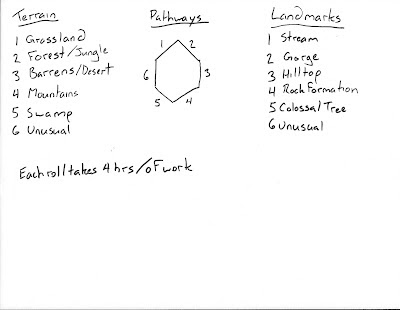 Terrain
1 Grassland
2 Forest/Jungle
3 Barrens/Desert
4 Mountains
5 Swamp
6 Unusual
Pathways
1 2
6 3
5 4
Landmarks
1 Stream
2 Gorge
3 Hilltop
4 Rock Formation
5 Colossal Tree
6 Unusual
Each roll takes 4 hrs/of work